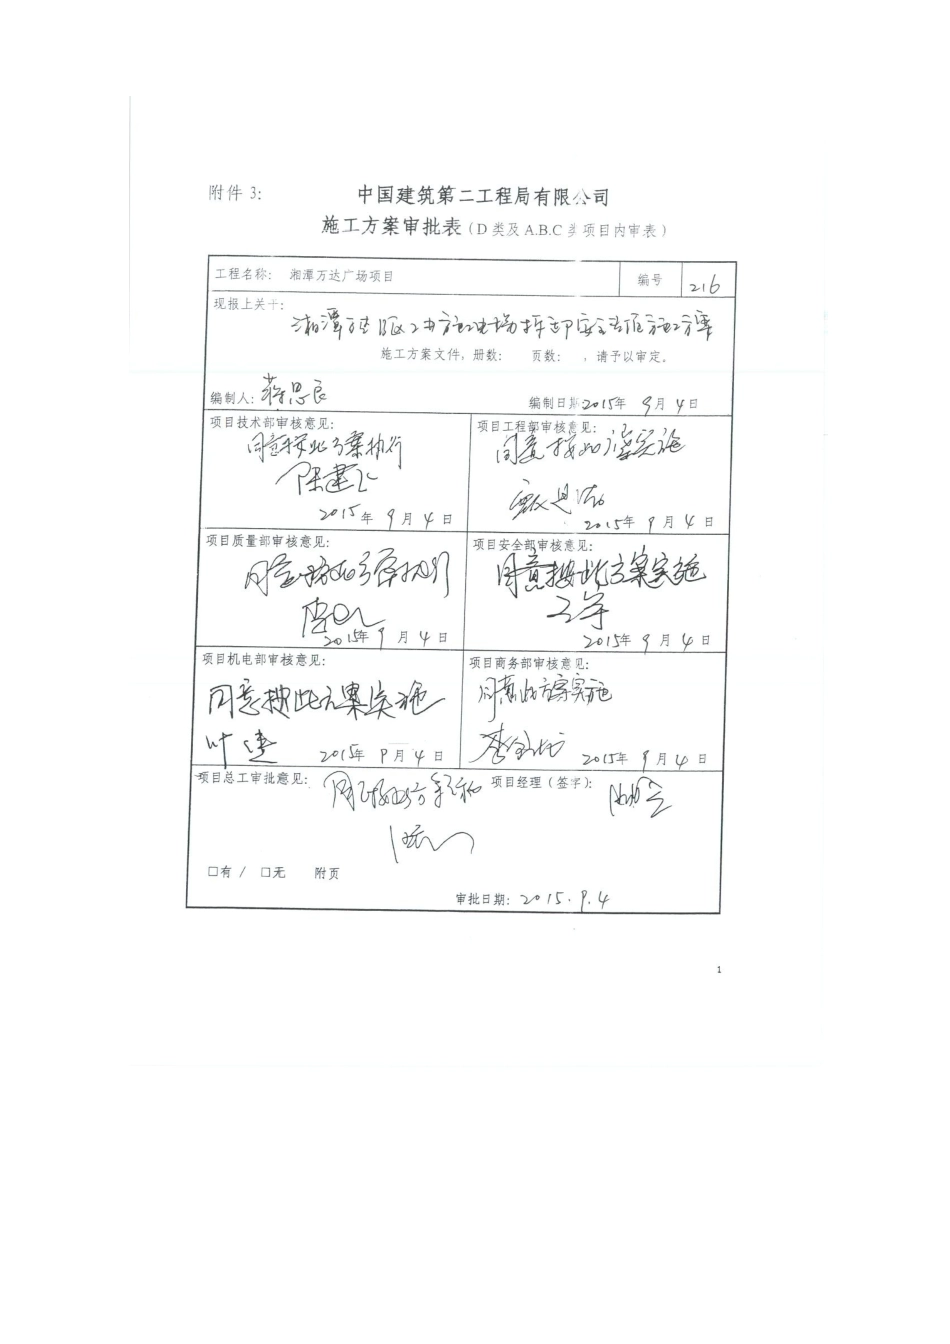 附件 3:
中国建筑第二工程局有限公司
施工方案审批表(D 类及 A.B.C 类项目内审表)
工程名称: 湘潭万达广场项目 编号 216
现报上关于:
湘潭万达
施工方案文件,册数: 页数: ,请予以审定。
编制人: 蒋思良 编制日期 2015年 9月 4日
项目技术部审核意见: 项目工程部审核意见:
同意按此方案执行 同意按此方案实施
陈建飞
2015年 9月 4日 2015年 9月 4日
项目质量部审核意见: 项目安全部审核意见:
同意按此方案执行 同意按此方案实施
2015年 9月 4日 2015年 9月 4日
项目机电部审核意见: 项目商务部审核意见:
同意按此方案实施 同意此方案实施
叶
2015年 9月 4日 2015年 9月 4日
项目总工审批意见: 项目经理(签字):
□有 / □无 附页
审批日期: 2015.9.4
1